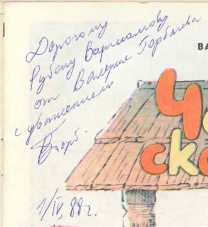 Дорогому
Рубену Варшамову
от Валерия Горбачева
с уважением
ВА
Ч
ска
1/IV, 88г.